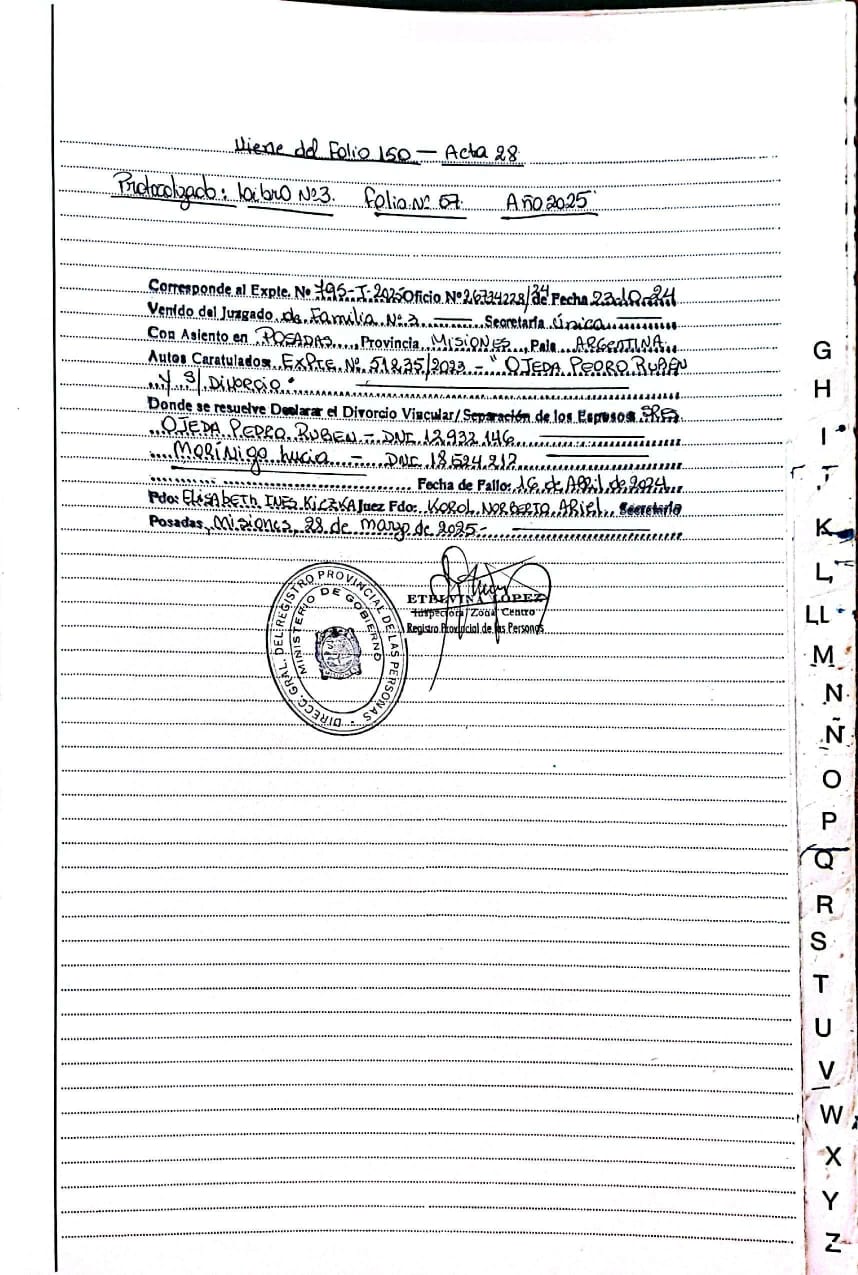 Viene del Folio 150 — Acta 28
Protocolizado: Libro Nº3. Folio Nº 67 Año 2025
Corresponde al Expte. No 795-I-2025 Oficio Nº 26734228/24 de Fecha 23.10.24
Venido del Juzgado de Familia Nº 3 Secretaría Única
Con Asiento en POSADAS, Provincia MISIONES, País ARGENTINA
Autos Caratulados EXPTE. Nº 51835/2023 - "OJEDA PEDRO RUBEN
Y S/ Divorcio"
Donde se resuelve Declarar el Divorcio Vincular/Separación de los Esposos
OJEDA PEDRO RUBEN - DNI. 12.932.146
MORÍNIGO Lucia - DNI. 18.524.212
Fecha de Fallo: 16 de April de 2024
Fdo: ELISABETH INES KICZKA Juez Fdo: KOROL NORBERTO ARIEL, Secretario
Posadas, Misiones, 28 de marzo de 2025-
ETELVINA LOPEZ
Inspectora Zona Centro
Registro Provincial de las Personas
DIRECC. GRAL. DEL REGISTRO PROVINCIAL DE LAS PERSONAS
MINISTERIO DE GOBIERNO
G
H
I
J
K
L
LL
M
N
Ñ
O
P
Q
R
S
T
U
V
W
X
Y
Z